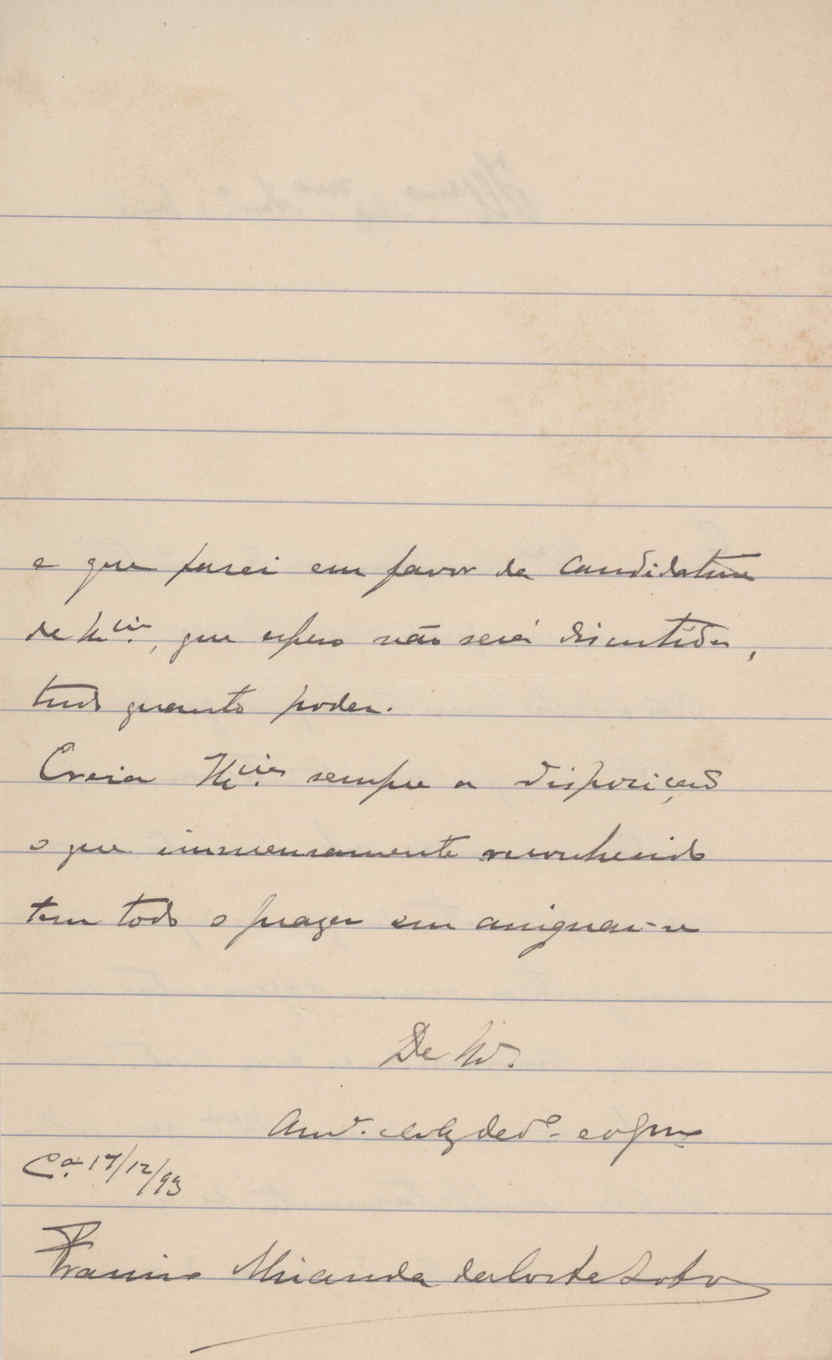 e que farei em favor da candidatura
de V.Ex.cia, que espero não será discutida,
tudo quanto poder.
Creia V.Ex.cia sempre a disposição
o que immensamente reconhecido
tem todo o prazer em assignar-se
De V.
Am.º obg.do
C.a 17/12/93
Francisco Miranda da Costa Lobo